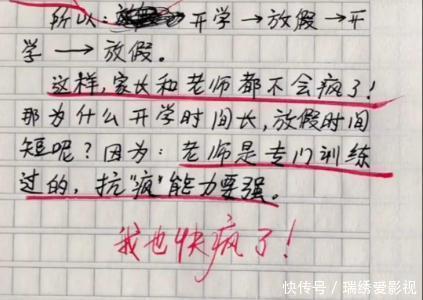 所以：开学→放假→开
学→放假。
这样，家长和老师都不会疯了！
那为什么开学时间长，放假时间
短呢？因为：老师是专门训练
过的，抗"疯"能力要强。
我也快疯了！
快传号/瑞绣爱影视